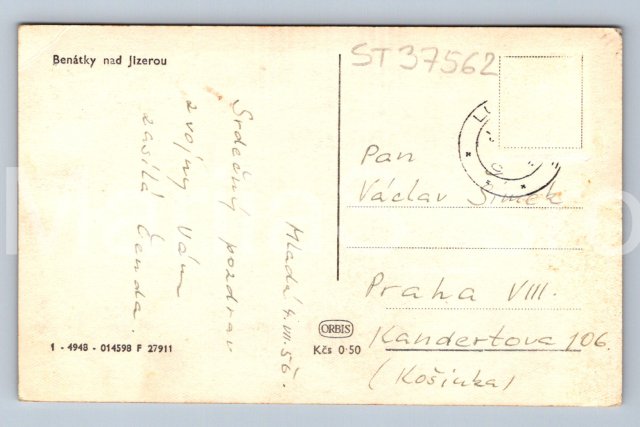 Benátky nad Jizerou
ST 37562
Mladá 4.VII.56.
Srdečný pozdrav
z vojny Vám
zasílá Čenda.
Pan
Václav Šimek
Praha VIII.
Kandertova 106.
(Košinka)
ORBIS
Kčs 0·50
1 - 4948 - 014598 F 27911